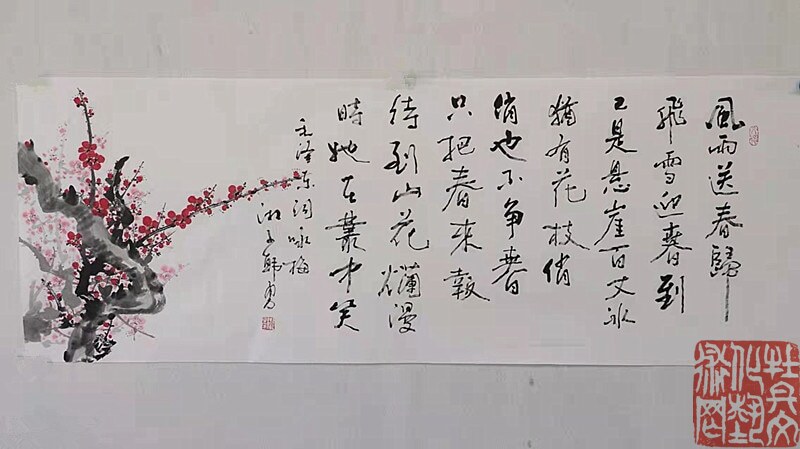 風雨送春歸
飛雪迎春到
已是悬崖百丈冰
猶有花枝俏
俏也不争春
只把春來報
待到山花爛漫
時她在叢中笑
毛泽东词咏梅